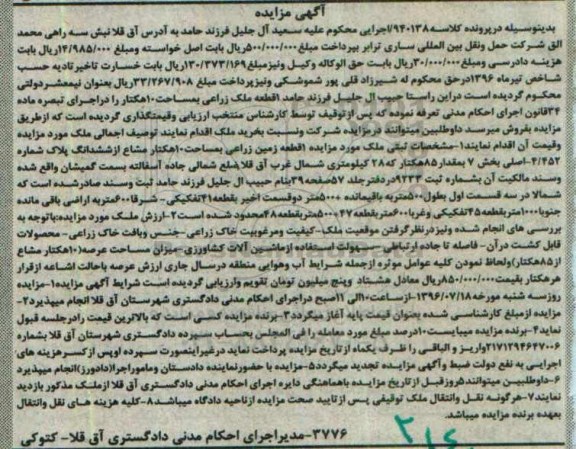 آگهی مزایده
بدینوسیله درپرونده کلاسه ۹۴۰۱۳۸/اجرایی محکوم علیه سعید آل جلیل فرزند حامد به آدرس آق قلا نبش سه راهی محمد
الق شرکت حمل ونقل بین المللی ساری ترابر بپرداخت مبلغ ۵۰۰/۰۰۰/۰۰۰ریال بابت اصل خواسته ومبلغ ۱۴/۹۸۵/۰۰۰ریال بابت
هزینه دادرسی ومبلغ ۳۰/۰۰۰/۰۰۰ریال بابت حق الوکاله وکیل ونیزمبلغ ۱۳۰/۳۷۳/۱۶۹ریال بابت خسارت تاخیرتادیه حسب
شاخص تیرماه ۱۳۹۶درحق محکوم له شیرزاد قلی پور شموشکی ونیزپرداخت مبلغ ۳۳/۲۶۷/۹۰۸ریال بعنوان نیمعشردولتی
محکوم گردیده است دراین راستا حبیب ال جلیل فرزند حامد ۱قطعه ملک زراعی بمساحت ۱۰هکتار را دراجرای تبصره ماده
۳۴قانون اجرای احکام مدنی تعرفه نموده که پس ازتوقیف توسط کارشناس منتخب ارزیابی وقیمتگذاری گردیده است که ازطریق
مزایده بفروش میرسد داوطلبین میتوانند درمزایده شرکت ونسبت بخرید ملک اقدام نمایند توصیف اجمالی ملک مورد مزایده
وقیمت آن اقدام نمایند۱-مشخصات ثبتی ملک مورد مزایده ۱قطعه زمین زراعی بمساحت ۱۰هکتار مشاع ازششدانگ پلاک شماره
۴/۴۵۲-اصلی بخش ۷ بمقدار ۸۵هکتار که ۲۸ کیلومتری شمال غرب آق قلا ضلع شمالی جاده آسفالته بسمت گمیشان واقع شده
وسند مالکیت آن بشماره ثبت ۹۲۳۳ دردفترجلد ۵۷صفحه ۳۹بنام حبیب ال جلیل فرزند حامد ثبت وسند صادرشده است که
شمالا در سه قسمت اول بطول ۵۰۰متربه باقیمانده ۵۰۰متر دوقسمت اخیر بقطعه ۴۱تفکیکی- شرقا ۶۰۰متربه اراضی باقی مانده
جنوبا ۱۰۰۰متربقطعه ۴۵تفکیکی وغربا ۶۰۰متربقطعه ۴۷و۵۰۰متربقطعه ۴۸محدود شده است ۲-ارزش ملک مورد مزایده:باتوجه به
بررسی های انجام شده ونیزدرنظرگرفتن موقعیت ملک-کیفیت ومرغوبیت خاک زراعی-جنس وبافت خاک زراعی-محصولات
قابل کشت درآن- فاصله تا جاده ارتباطی -سهولت استفاده ازماشین آلات کشاورزی-میزان مساحت عرصه(۱۰هکتار مشاع
از۸۵هکتار)ولحاظ نمودن کلیه عوامل موثره ازجمله شرایط آب وهوایی منطقه درسال جاری ارزش عرصه باحالت اشاعه ازقرار
هرهکتار بقیمت ۸۵۰/۰۰۰/۰۰۰ریال معادل هشتاد وپنج میلیون تومان تقویم وارزیابی گردیده است شرایط آگهی مزایده۱-مزایده
روزسه شنبه مورخه ۱۳۹۶/۰۷/۱۸-ازساعت ۱۰الی ۱۱صبح دراجرای احکام مدنی دادگستری شهرستان آق قلا انجام میپذیرد۲-
مزایده ازمبلغ کارشناسی شده بعنوان قیمت پایه آغاز میگردد۳-برنده مزایده کسی است که بالاترین قیمت رادرجلسه قبول
نماید۴-برنده مزایده میبایست ۱۰درصد مبلغ مورد معامله را فی المجلس بحساب سپرده دادگستری شهرستان آق قلا بشماره
۲۱۷۱۲۹۴۶۴۷۰۰۶واریز و الباقی را ظرف یکماه ازتاریخ مزایده پرداخت نماید درغیراینصورت سپرده اوپس ازکسرهزینه های
اجرایی به نفع دولت ضبط وآگهی مزایده تجدید میگردد۵-مزایده با حضورنماینده دادستان ومامورراجرا(دادورز)انجام میپذیرد
۶-داوطلبین میتوانند ۵روزقبل ازتاریخ مزایده باهماهنگی دایره اجرای احکام مدنی دادگستری آق قلا ازملک مذکور بازدید
نمایند۷-هرگونه نقل وانتقال ملک توقیفی پس ازتایید صحت مزایده ازناحیه دادگاه میباشد۸-کلیه هزینه های نقل وانتقال
بعهده برنده مزایده میباشد.
۳۷۷۶-مدیراجرای احکام مدنی دادگستری آق قلا- کتوکی